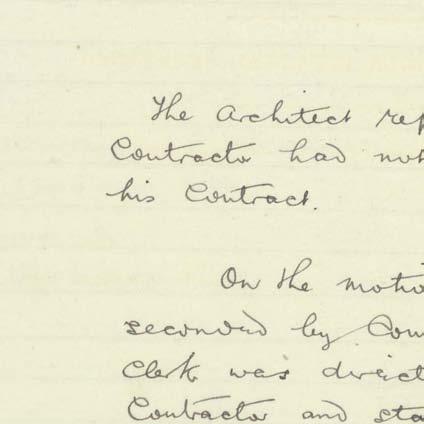 The Architect rep
Contractor had not
his Contract.
On the motio
seconded by Cou
Clerk was direct
Contractor and sta